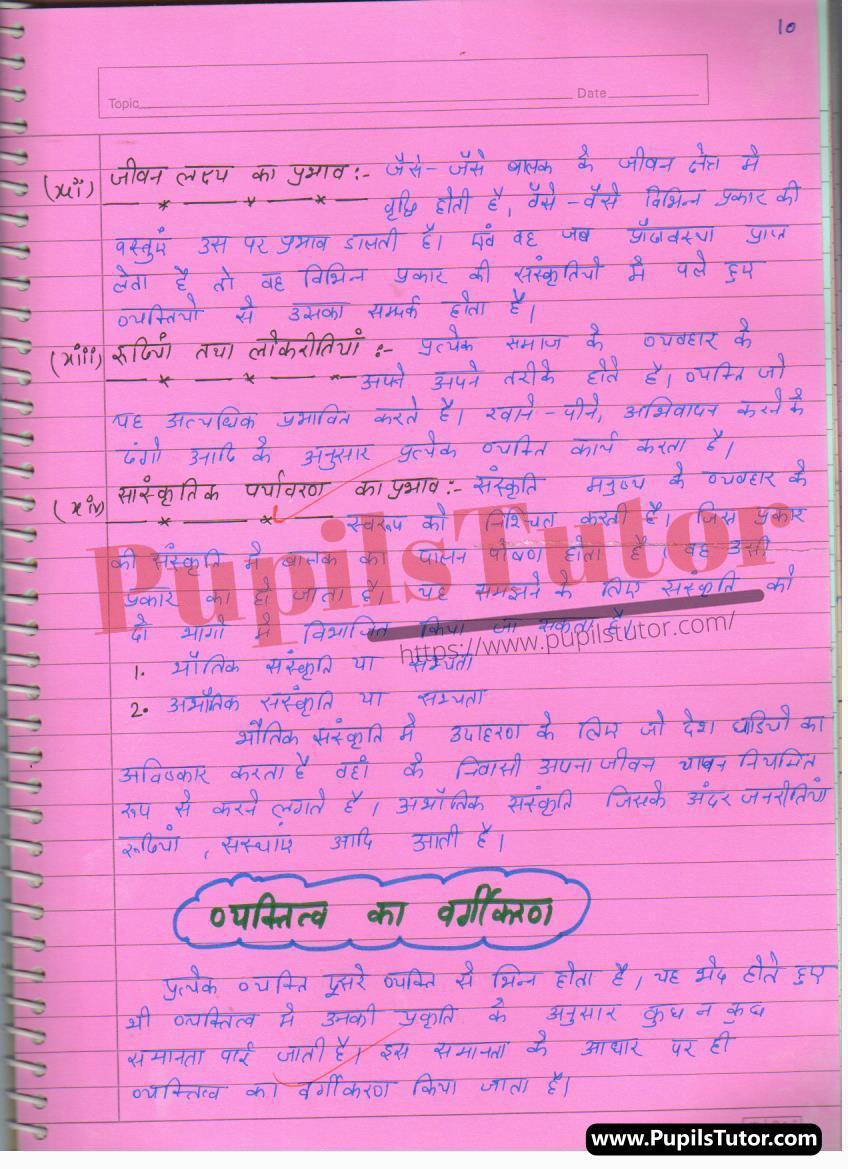 10
Topic
Date
(xii) जीवन लक्ष्य का प्रभाव :- जैसे-जैसे बालक के जीवन क्षेत्र मे
वृद्धि होती है, वैसे-वैसे विभिन्न प्रकार की
वस्तुएं उस पर प्रभाव डालती है। एवं वह जब प्रौढावस्था प्राप्त
लेता है तो वह विभिन्न प्रकार की संस्कृतियो मे पले हुए
व्यक्तियो से उसका सम्पर्क होता है।
(xiii) रूढियां तथा लोकरीतियां :- प्रत्येक समाज के व्यवहार के
अपने अपने तरीके होते है। व्यक्ति जो
यह अत्यधिक प्रभावित करते है। खाने-पीने, अभिवादन करने के
ढंगो आदि के अनुसार प्रत्येक व्यक्ति कार्य करता है।
(xiv) सांस्कृतिक पर्यावरण का प्रभाव :- संस्कृति मनुष्य के व्यवहार के
स्वरूप को निश्चित करती है। जिस प्रकार
की संस्कृति मे बालक का पालन पोषण होता है। वह उसी
प्रकार का हो जाता है। यह समझने के लिए संस्कृति को
दो भागो मे विभाजित किया जा सकता है।
PupilsTutor
https://www.pupilstutor.com/
1. भौतिक संस्कृति या सभ्यता
2. अभौतिक संस्कृति या सभ्यता
भौतिक संस्कृति मे उदाहरण के लिए जो देश घडियो का
अविष्कार करता है वहां के निवासी अपना जीवन यापन नियमित
रूप से करने लगते है। अभौतिक संस्कृति जिसके अंदर जनरीतियां
रूढियां, संस्थाएं आदि आती है।
व्यक्तित्व का वर्गीकरण
प्रत्येक व्यक्ति दूसरे व्यक्ति से भिन्न होता है, यह भेद होते हुए
भी व्यक्तित्व मे उनकी प्रकृति के अनुसार कुछ न कुछ
समानता पाई जाती है। इस समानता के आधार पर ही
व्यक्तित्व का वर्गीकरण किया जाता है।
www.PupilsTutor.com